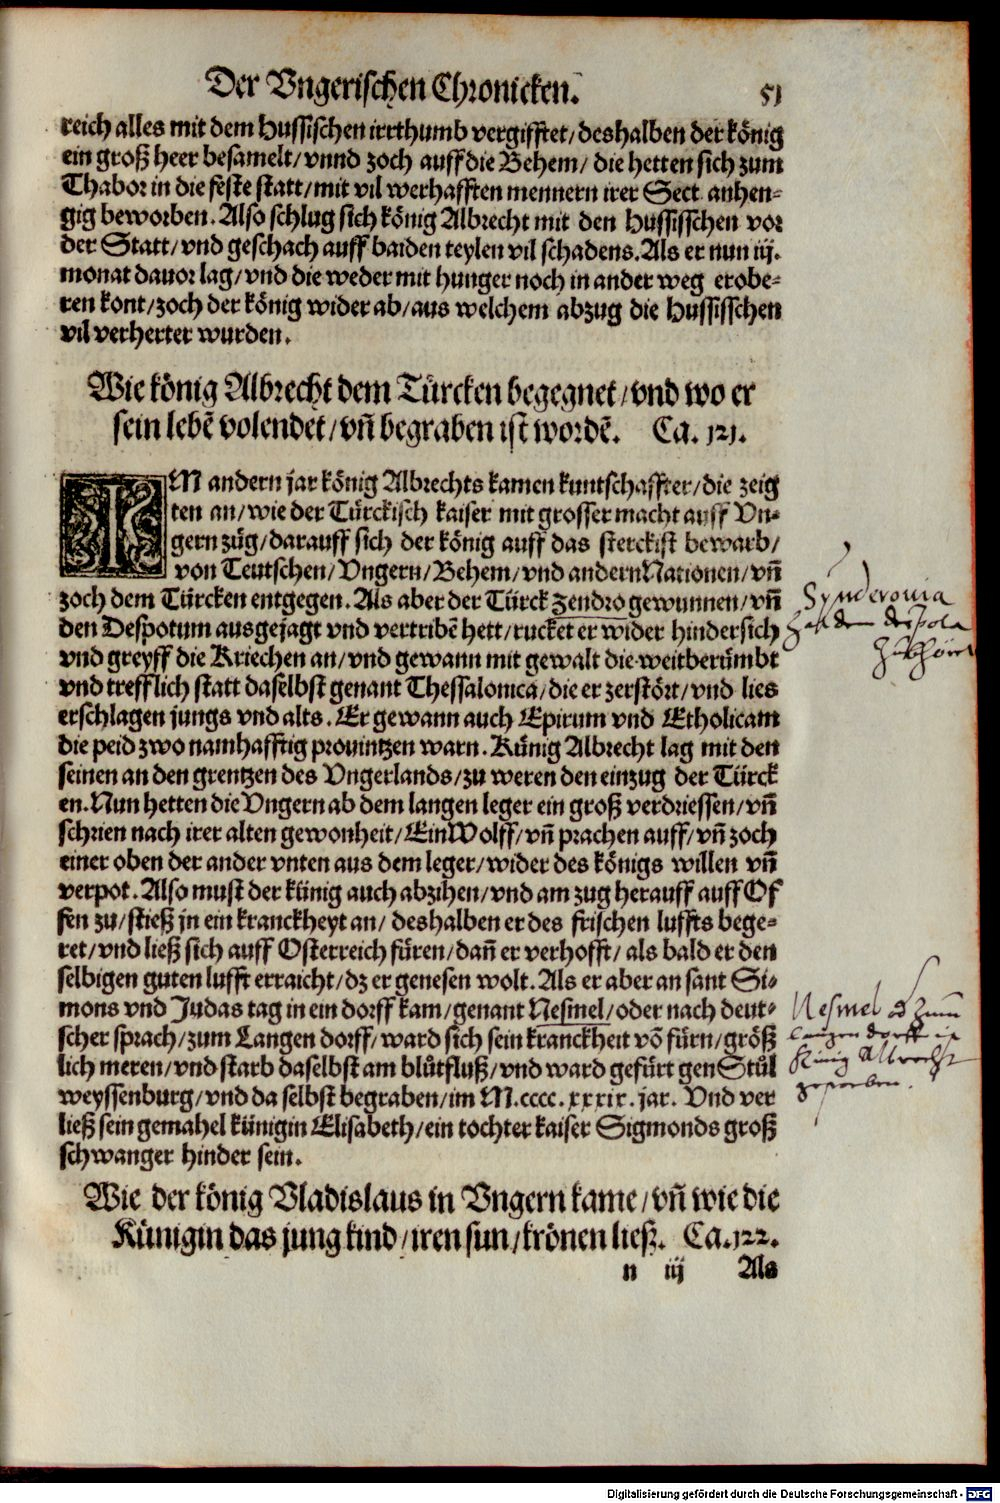 Der Vngerischen Chronicken. 51
reich alles mit dem Hussischen irrthumb vergifftet/ deshalben der könig
ein groß heer besamelt/ vnnd zoch auff die Behem/ die hetten sich zum
Thabor in die feste statt/ mit vil werhafften mennern irer Sect anhen⸗
gig beworben. Also schlug sich könig Albrecht mit den Hussisschen vor
der Statt/ vnd geschach auff baiden teylen vil schadens. Als er nun iij.
monat dauor lag/ vnd die weder mit hunger noch in ander weg erobe⸗
ren kont/ zoch der könig wider ab/ aus welchem abzug die Hussisschen
vil verherter wurden.
Wie könig Albrecht dem Türcken begegnet/ vnd wo er
sein lebē volendet/ vñ begraben ist wordē. Ca. 121.
IM andern jar könig Albrechts kamen kuntschaffter/ die zeig
ten an/ wie der Türckisch kaiser mit grosser macht auff Vn⸗
gern züg/ darauff sich der könig auff das sterckist bewarb/
von Teutschen/ Vngern/ Behem/ vnd andern Nationen/ vñ
zoch dem Türcken entgegen. Als aber der Türck Zendro gewunnen/ vñ
den Despotum ausgejagt vnd vertribē hett/ rucket er wider hindersich
vnd greyff die Kriechen an/ vnd gewann mit gewalt die weitberümbt
vnd trefflich statt daselbst genant Thessalonica/ die er zerstört/ vnd lies
erschlagen jungs vnd alts. Er gewann auch Epirum vnd Etholicam
die peid zwo namhafftig prouintzen warn. Künig Albrecht lag mit den
seinen an den grentzen des Vngerlands/ zu weren den einzug der Türck
en. Nun hetten die Vngern ab dem langen leger ein groß verdriessen/ vñ
schrien nach irer alten gewonheit/ Ein Wolff/ vñ prachen auff/ vñ zoch
einer oben der ander vnten aus dem leger/ wider des königs willen vñ
verpot. Also must der künig auch abzihen/ vnd am zug herauff auff Of
fen zu/ stieß jn ein kranckheyt an/ deshalben er des frischen luffts bege⸗
ret/ vnd ließ sich auff Osterreich füren/ dañ er verhofft/ als bald er den
selbigen guten lufft erraicht/ dz er genesen wolt. Als er aber an sant Si⸗
mons vnd Judas tag in ein dorff kam/ genant Nesmel/ oder nach deut⸗
scher sprach/ zum Langen dorff/ ward sich sein kranckheit vō fürn/ größ
lich meren/ vnd starb daselbst am blůtfluß/ vnd ward gefürt gen Stůl
weyssenburg/ vnd da selbst begraben/ im M.cccc.xxxix. jar. Vnd ver
ließ sein gemahel künigin Elisabeth/ ein tochter kaiser Sigmonds groß
schwanger hinder sein.
Wie der könig Vladislaus in Vngern kame/ vñ wie die
Künigin das jung kind/ iren sun/ krönen ließ. Ca. 122.
n iij Als
Synderouia
hat dem despota
Nesmel od zum
langen dorff ist
König Albrecht
gestorben.
Digitalisierung gefördert durch die Deutsche Forschungsgemeinschaft - DFG